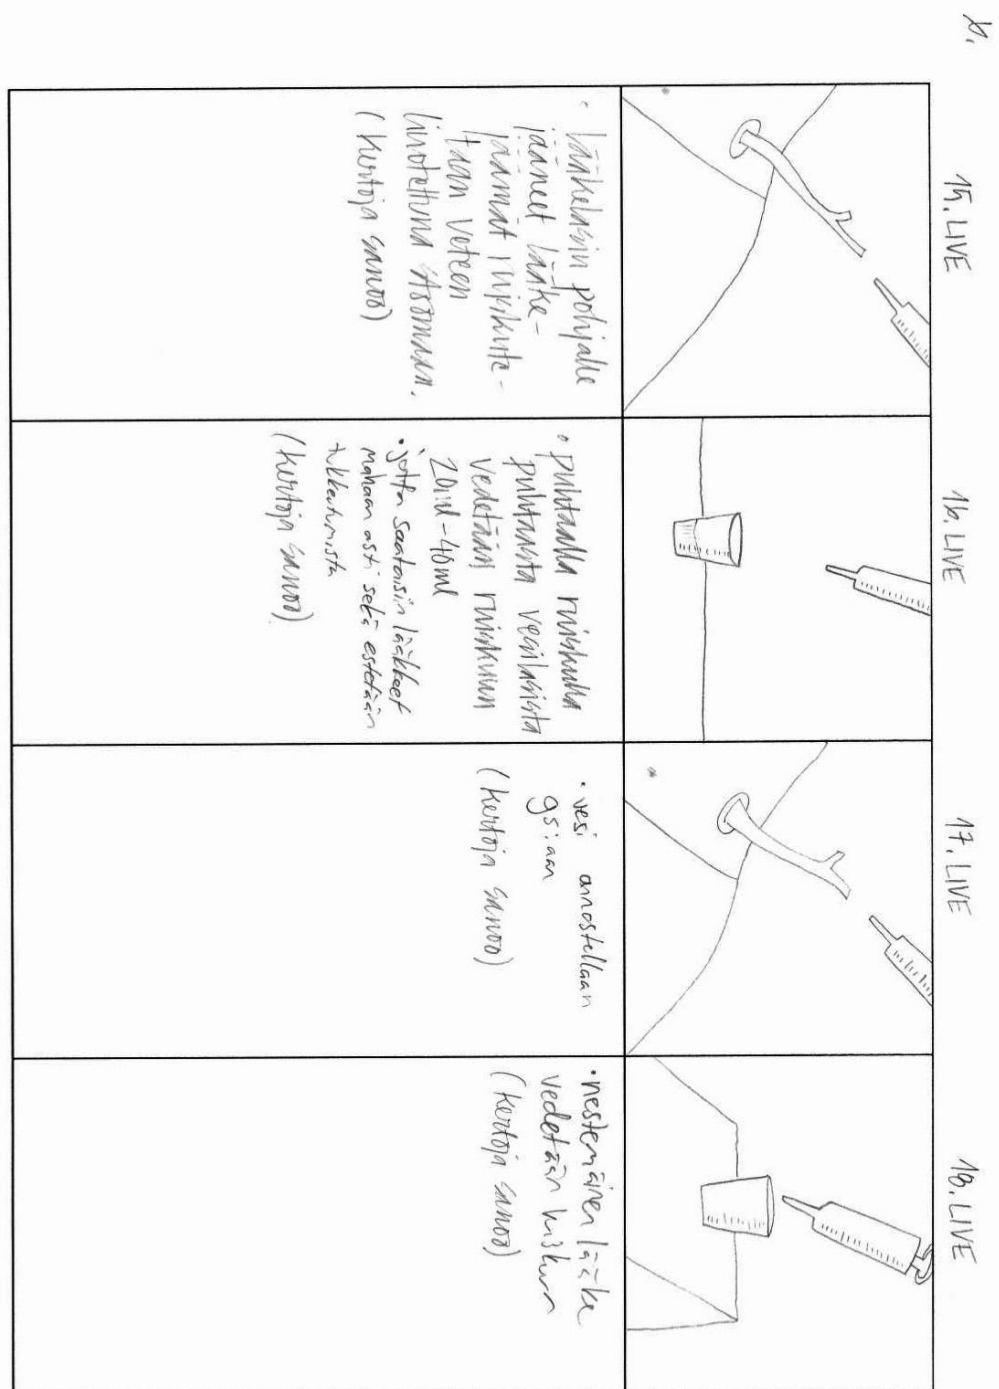 15. LIVE
· lääkelasin pohjalle
jääneet lääke-
jäämät ruiskute-
taan veteen
liuotettuna
(kertoja sanoo)
16. LIVE
· puhtaalla ruiskulla
puhtaasta vesilasista
vedetään ruiskuun
20ml-40ml
· jotta saataisiin lääkkeet
mahaan asti sekä estetään
tukkeutumista
(kertoja sanoo)
17. LIVE
· vesi annostellaan
gs:aan
(kertoja sanoo)
18. LIVE
· nestemäinen lääke
vedetään ruiskuun
(kertoja sanoo)